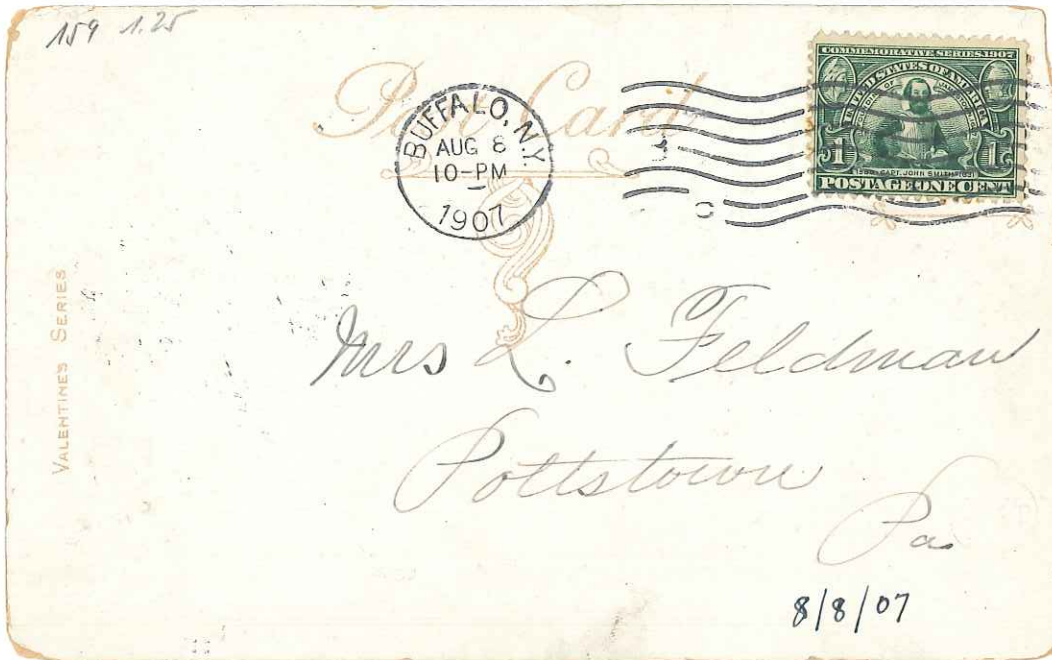 159 1.25
Post Card
BUFFALO, N.Y.
AUG 8
10-PM
1907
COMMEMORATIVE SERIES 1907
UNITED STATES OF AMERICA
1 1
1580 CAPT. JOHN SMITH 1631
POSTAGE ONE CENT
VALENTINES SERIES
Mrs L. Feldman
Pottstown
Pa
8/8/07